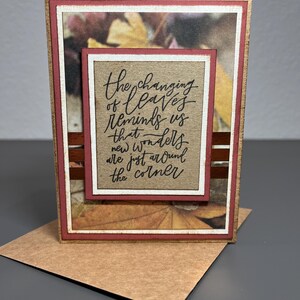 the changing
of leaves
reminds us
that
new wonders
are just around
the corner